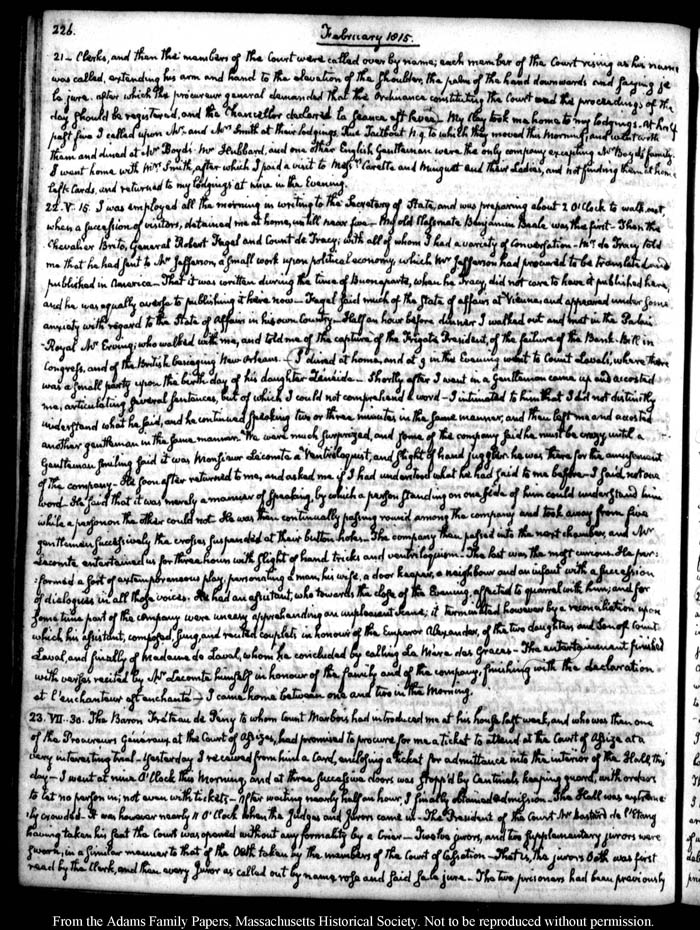 226.
February 1815.
21 — Clerks, and then the members of the Court were called over by name; each member of the Court rising as his name
was called, extending his arm and hand to the elevation of the shoulder, the palm of the hand downwards and saying je
le jure. after which the procureur general demanded that the Ordinance constituting the Court and the proceedings of the
day should be registered, and the Chancellor declared la Seance est levee — My Clay took me home to my lodgings. At
past five I called upon Mr. and Mrs Smith at their lodgings Rue Taitbout N. 9 to which they moved this morning; and went with
them and dined at Mr Boyd's. Mr Hubbard, and one other English Gentleman were the only company excepting Mr Boyd's family.
I went home with Mrs Smith, after which I paid a visit to Messrs Carette and Minguett and their Ladies, and not finding them at home
left Cards, and returned to my lodgings at nine in the Evening.
22. V. 15. I was employed all the morning in writing to the Secretary of State, and was preparing about 2 O'Clock to walk out,
when a succession of visitors, detained me at home, untill near five — My old Classmate Benjamin Beale was the first — Then the
Chevalier Brito, General Robert Fagel and Count de Tracy; with all of whom I had a variety of Conversation — Mr. de Tracy told
me that he had sent to Mr Jefferson, a small work upon political economy, which Mr Jefferson had procured to be translated and
published in America — That it was written during the time of Buonaparte, when he, Tracy, did not care to have it published here,
and he was equally averse to publishing it here now — Fagel said much of the State of affairs at Vienna, and appeared under some
anxiety with regard to the State of Affairs in his own Country — Half an hour before dinner I walked out and met in the Palais
-Royal Mr Erving; who walked with me, and told me of the capture of the Frigate President, of the failure of the Bank-Bill in
Congress, and of the British besieging New Orleans. I dined at home, and at 9 in the Evening went to Count Laval's, where there
was a small party upon the birth day of his daughter Zenéide — Shortly after I went in a Gentleman came up and accosted
me, articulating several sentences, but of which I could not comprehend a word — I intimated to him that I did not distinctly
understand what he said, and he continued speaking two or three minutes in the same manner, and then left me and accosted
another gentleman in the same manner. We were much surprized, and some of the company said he must be crazy, until a
Gentleman smiling said it was Monsieur Lecomte a Ventriloquist, and slight of hand juggler he was there for the amusement
of the company — He soon after returned to me, and asked me if I had understood what he had said to me before — I said, not one
word — He said that it was merely a manner of speaking, by which a person standing on one side of him could understand him
while a person on the other could not. He was then continually passing round among the company and took away from five
gentlemen successively the crosses suspended at their button holes. The company then passed into the next chamber, and Mr
Lecomte entertained us for three hours with slight of hand tricks and ventriloquism — The last was the most curious. He per:
:formed a sort of extemporaneous play, personating a man, his wife, a door keeper, a neighbour and an infant with a succession
of dialogues in all those voices. He had an assistant, who towards the close of the Evening, affected to quarrel with him; and for
some time part of the company were uneasy apprehending an unpleasant scene; it terminated however by a reconciliation upon
which his assistant, composed, sung, and recited couplets in honour of the Emperor Alexander, of the two daughters and Son of Count
Laval, and finally of Madame de Laval, whom he concluded by calling La Mere des Graces — The entertainment finished
with verses recited by Mr Lecomte himself in honour of the family and of the company, finishing with the declaration
et l'enchanteur est enchanté — I came home between one and two in the Morning.
23. VII. 30. The Baron Fréteau de Peny to whom Count Marbois had introduced me at his house last week, and who was then one
of the Procureurs Généraux at the Court of Assizes, had promised to procure for me a ticket to attend at the Court of Assize at a
very interesting trial — Yesterday I received from him a Card, enclosing a ticket for admittance into the interior of the Hall, this
day — I went at nine O'Clock this Morning, and at three successive doors was stopp'd by Centinels keeping guard, with orders
to let no person in; not even with tickets — After waiting nearly half an hour I finally obtained admission. The Hall was extreme
:ly crowded — It was however nearly 11 O'Clock when the Judges and Jurors came in — The President of the Court Mr Bastard de l'Etang
having taken his seat the Court was opened without any formality by a Crier — Twelve jurors, and two supplementary jurors were
sworn, in a similar manner to that of the Oath taken by the members of the Court of Cassation — That is, the jurors Oath was first
read by the Clerk, and then every juror as called out by name, rose and said je le jure — The two prisoners had been previously
From the Adams Family Papers, Massachusetts Historical Society. Not to be reproduced without permission.